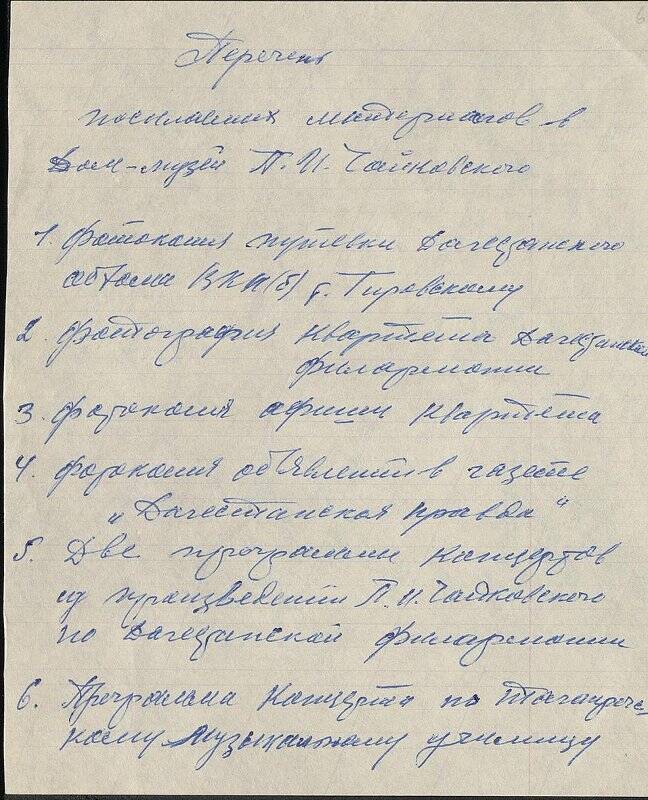 Перечень
посылаемых материалов в
Дом-музей П.И. Чайковского
1. Фотокопия путевки Дагестанского
обкома ВКП(б) т. Гировскому
2. Фотография квартета Дагестанской
филармонии
3. Фотокопия афиши квартета
4. Фотокопия объявления в газете
„Дагестанская правда“
5. Две программы концертов
из произведений П.И. Чайковского
по Дагестанской филармонии
6. Программа концерта по Таганрогс-
кому музыкальному училищу